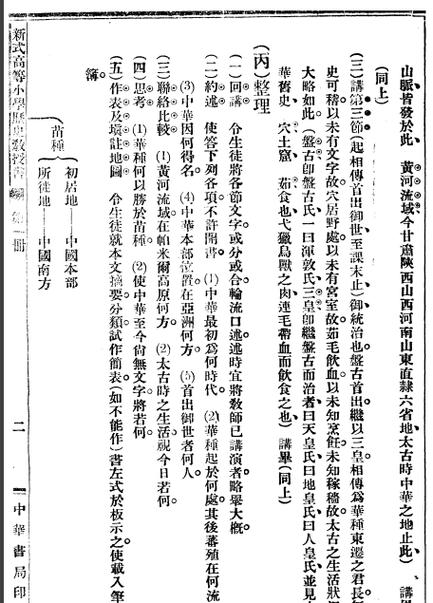 山脈皆發於此 黃河流域今甘肅陝西山西河南山東直隸六省地太古時中華之地止此 講
(同上)
(三)講第三節(起相傳首出御世至課末止)御統治也盤古首出繼以三皇相傳爲華種東遷之君長
史可稽以未有文字故穴居野處以未有宮室故茹毛飲血以未知烹飪未知稼穡故太古之生活狀
大略如此(盤古卽盤古氏一曰渾敦氏三皇卽繼盤古而治者曰天皇氏曰地皇氏曰人皇氏並見
華舊史 穴土窟 茹食也弋獵鳥獸之肉連毛帶血而飲食之也)講畢(同上)
(丙)整理
(一)回講 令生徒將各節文字或分或合輪流口述述時宜將敎師已講演者略舉大槪
(二)約述 使答下列各項不許開書 (1)中華最初爲何時代 (2)華種起於何處其後蕃殖在何流
(3)中華因何得名 (4)中華本部位置在亞洲何方 (5)首出御世者何人
(三)聯絡比較 (1)黃河流域在帕米爾高原何方 (2)太古時之生活視今日若何
(四)思考 (1)華種何以勝於苗種 (2)使中華至今尙無文字將若何
(五)作表及塡註地圖 令生徒就本文摘要分類試作簡表(如不能作)書左式於板示之使載入筆
簿
苗種
初居地——中國本部
所徙地——中國南方
新式高等小學歷史敎授書 第一冊
二
中華書局印